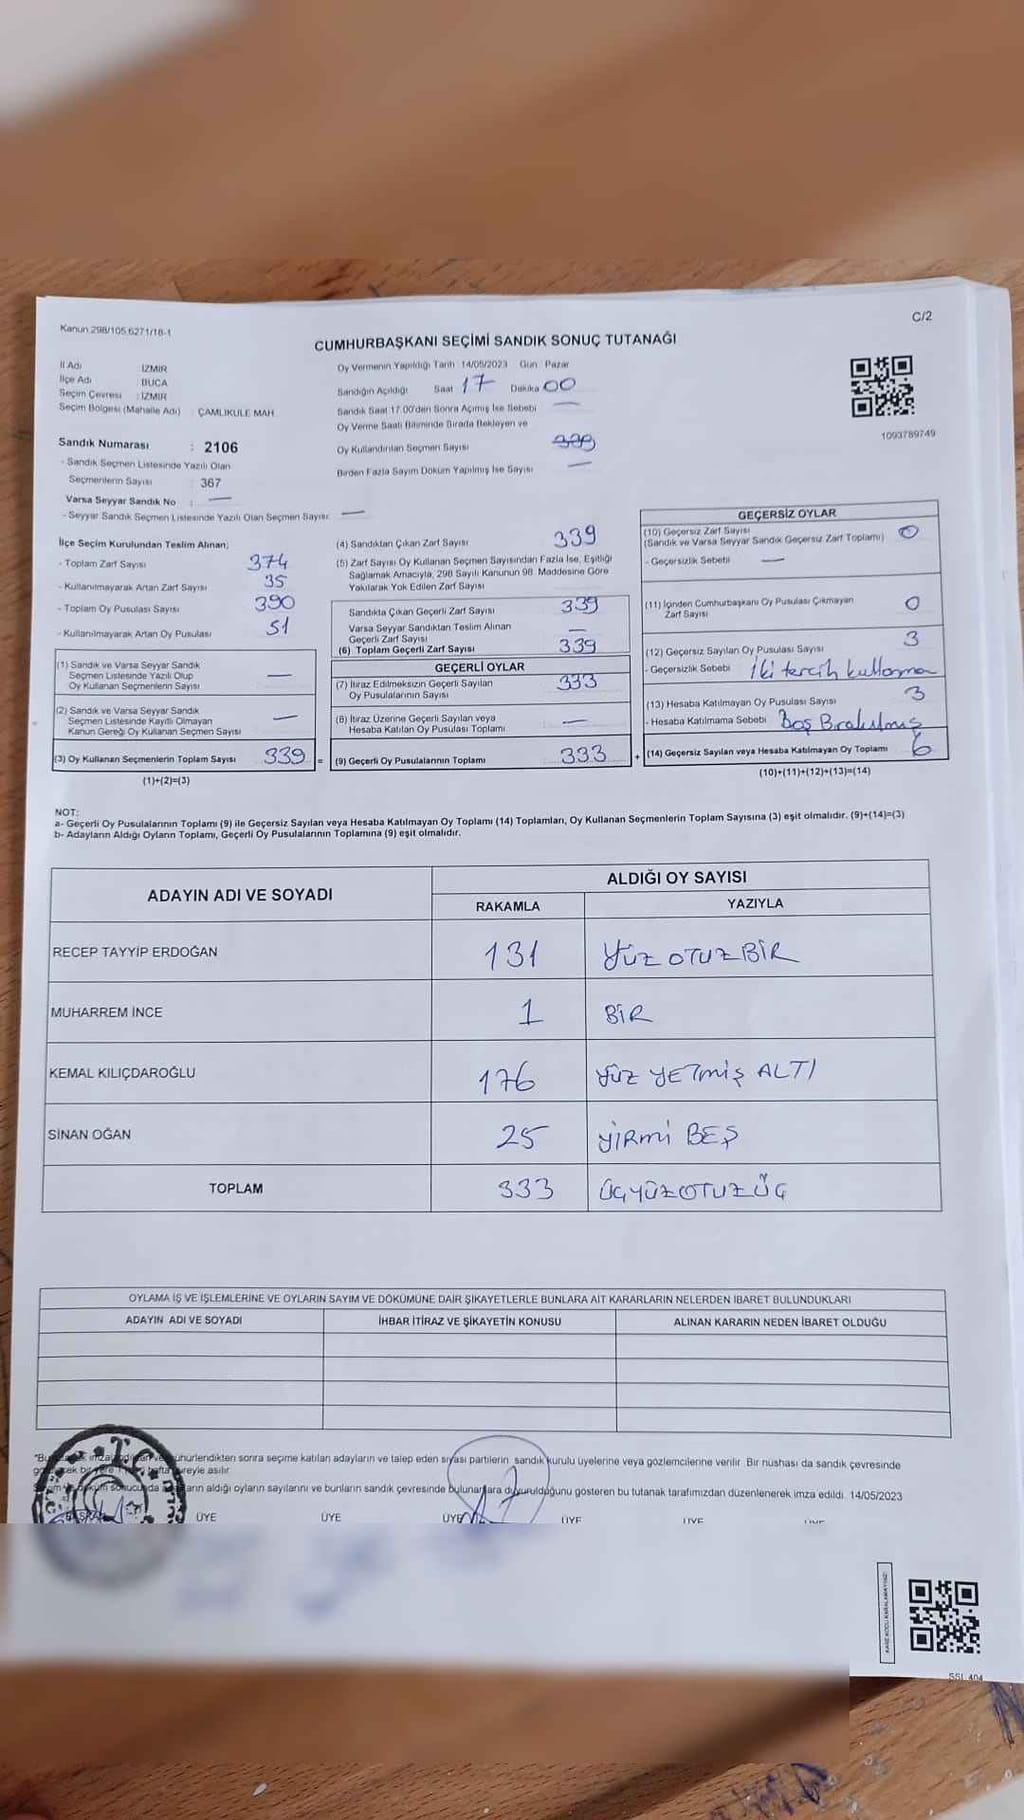 Kanun 298/105 6271/18-1
C/2
CUMHURBAŞKANI SEÇİMİ SANDIK SONUÇ TUTANAĞI
İl Adı İZMİR
İlçe Adı BUCA
Seçim Çevresi : İZMİR
Seçim Bölgesi (Mahalle Adı) : ÇAMLIKULE MAH.
Sandık Numarası : 2106
- Sandık Seçmen Listesinde Yazılı Olan
Seçmenlerin Sayısı : 367
Varsa Seyyar Sandık No : —
- Seyyar Sandık Seçmen Listesinde Yazılı Olan Seçmen Sayısı: —
Oy Vermenin Yapıldığı Tarih : 14/05/2023 Gün : Pazar
Sandığın Açıldığı Saat 17 Dakika 00
Sandık Saat 17.00'den Sonra Açımış İse Sebebi —
Oy Verme Saati Bitiminde Sırada Bekleyen ve
Oy Kullandırılan Seçmen Sayısı 339
Birden Fazla Sayım Döküm Yapılmış İse Sayısı —
1093789749
İlçe Seçim Kurulundan Teslim Alınan;
- Toplam Zarf Sayısı 374
- Kullanılmayarak Artan Zarf Sayısı 35
- Toplam Oy Pusulası Sayısı 390
- Kullanılmayarak Artan Oy Pusulası 51
(1) Sandık ve Varsa Seyyar Sandık
Seçmen Listesinde Yazılı Olup
Oy Kullanan Seçmenlerin Sayısı —
(2) Sandık ve Varsa Seyyar Sandık
Seçmen Listesinde Kayıtlı Olmayan
Kanun Gereği Oy Kullanan Seçmen Sayısı —
(3) Oy Kullanan Seçmenlerin Toplam Sayısı 339 =
(1)+(2)=(3)
(4) Sandıktan Çıkan Zarf Sayısı 339
(5) Zarf Sayısı Oy Kullanan Seçmen Sayısından Fazla İse, Eşitliği
Sağlamak Amacıyla, 298 Sayılı Kanunun 98. Maddesine Göre
Yakılarak Yok Edilen Zarf Sayısı
Sandıkta Çıkan Geçerli Zarf Sayısı 339
Varsa Seyyar Sandıktan Teslim Alınan
Geçerli Zarf Sayısı —
(6) Toplam Geçerli Zarf Sayısı 339
GEÇERLİ OYLAR
(7) İtiraz Edilmeksizin Geçerli Sayılan
Oy Pusulalarının Sayısı 333
(8) İtiraz Üzerine Geçerli Sayılan veya
Hesaba Katılan Oy Pusulası Toplamı —
(9) Geçerli Oy Pusulalarının Toplamı 333 +
GEÇERSİZ OYLAR
(10) Geçersiz Zarf Sayısı
(Sandık ve Varsa Seyyar Sandık Geçersiz Zarf Toplamı) 0
- Geçersizlik Sebebi —
(11) İçinden Cumhurbaşkanı Oy Pusulası Çıkmayan
Zarf Sayısı 0
(12) Geçersiz Sayılan Oy Pusulası Sayısı 3
- Geçersizlik Sebebi İki tercih kullanma
(13) Hesaba Katılmayan Oy Pusulası Sayısı 3
- Hesaba Katılmama Sebebi Boş Bırakılmış
(14) Geçersiz Sayılan veya Hesaba Katılmayan Oy Toplamı 6
(10)+(11)+(12)+(13)=(14)
NOT:
a- Geçerli Oy Pusulalarının Toplamı (9) ile Geçersiz Sayılan veya Hesaba Katılmayan Oy Toplamı (14) Toplamları, Oy Kullanan Seçmenlerin Toplam Sayısına (3) eşit olmalıdır. (9)+(14)=(3)
b- Adayların Aldığı Oyların Toplamı, Geçerli Oy Pusulalarının Toplamına (9) eşit olmalıdır.
ADAYIN ADI VE SOYADI
ALDIĞI OY SAYISI
RAKAMLA YAZIYLA
RECEP TAYYİP ERDOĞAN 131 YÜZ OTUZ BİR
MUHARREM İNCE 1 BİR
KEMAL KILIÇDAROĞLU 176 YÜZ YETMİŞ ALTI
SİNAN OĞAN 25 YİRMİ BEŞ
TOPLAM 333 ÜÇYÜZOTUZÜÇ
OYLAMA İŞ VE İŞLEMLERİNE VE OYLARIN SAYIM VE DÖKÜMÜNE DAİR ŞİKAYETLERLE BUNLARA AİT KARARLARIN NELERDEN İBARET BULUNDUKLARI
ADAYIN ADI VE SOYADI İHBAR İTİRAZ VE ŞİKAYETİN KONUSU ALINAN KARARIN NEDEN İBARET OLDUĞU
sonra seçime katılan adayların ve talep eden siyasi partilerin sandık kurulu üyelerine veya gözlemcilerine verilir. Bir nüshası da sandık çevresinde
asılır.
aldığı oyların sayılarını ve bunların sandık çevresinde bulunanlara duyurulduğunu gösteren bu tutanak tarafımızdan düzenlenerek imza edildi. 14/05/2023
T.C.
ÜYE ÜYE ÜYE ÜYE ÜYE